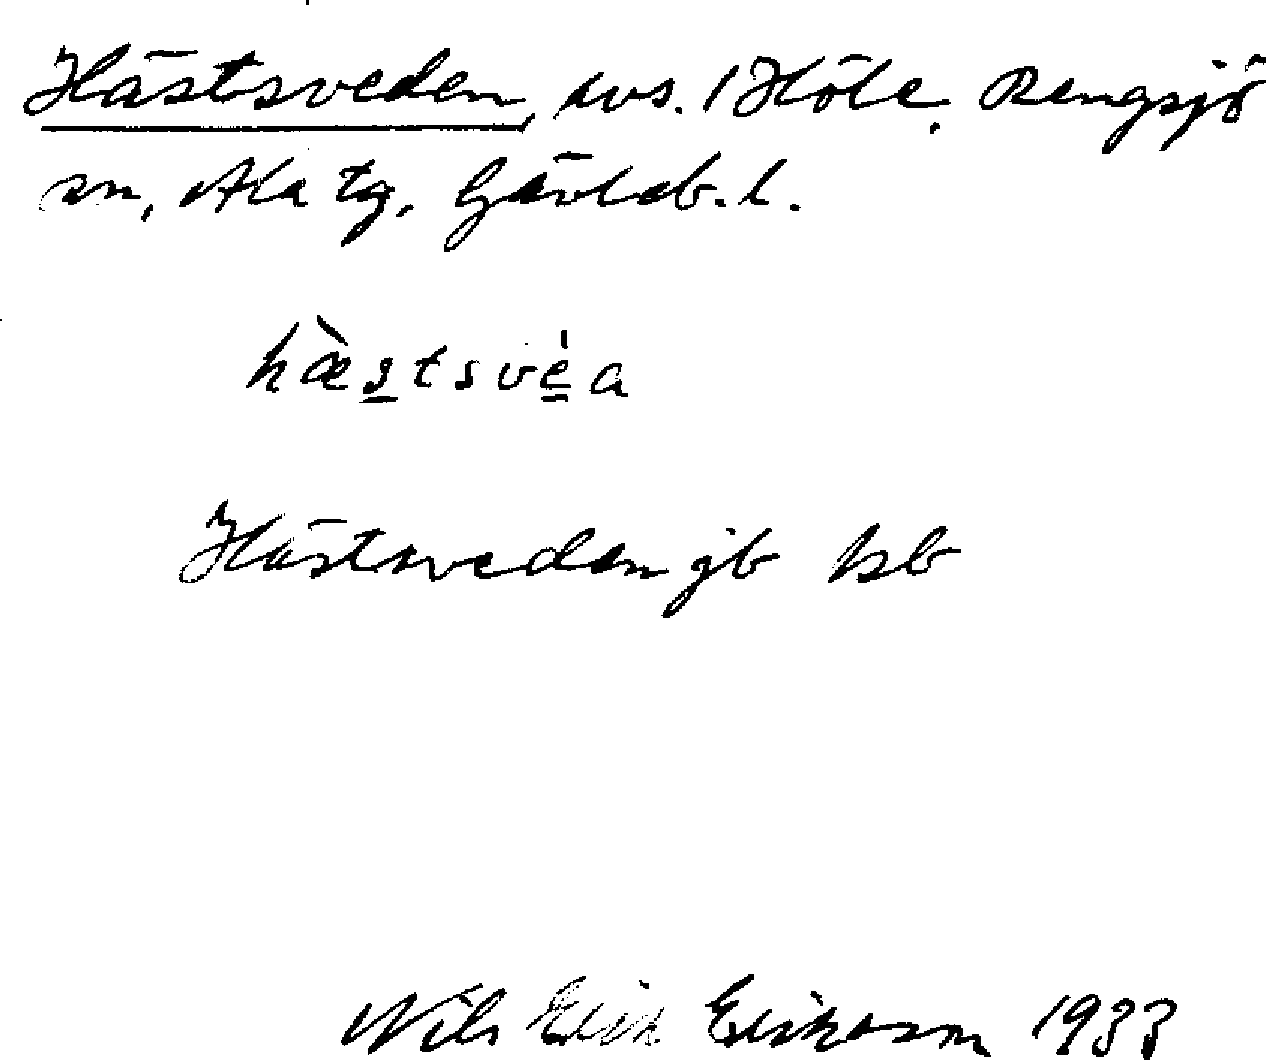 Hästsveden, avs. 1 Höle, Rengsjö
sn, Ala tg, Gävleb. l.
hæ̀stsvèa
Hästsveden jb ksb
Nils Erik Erikson 1933